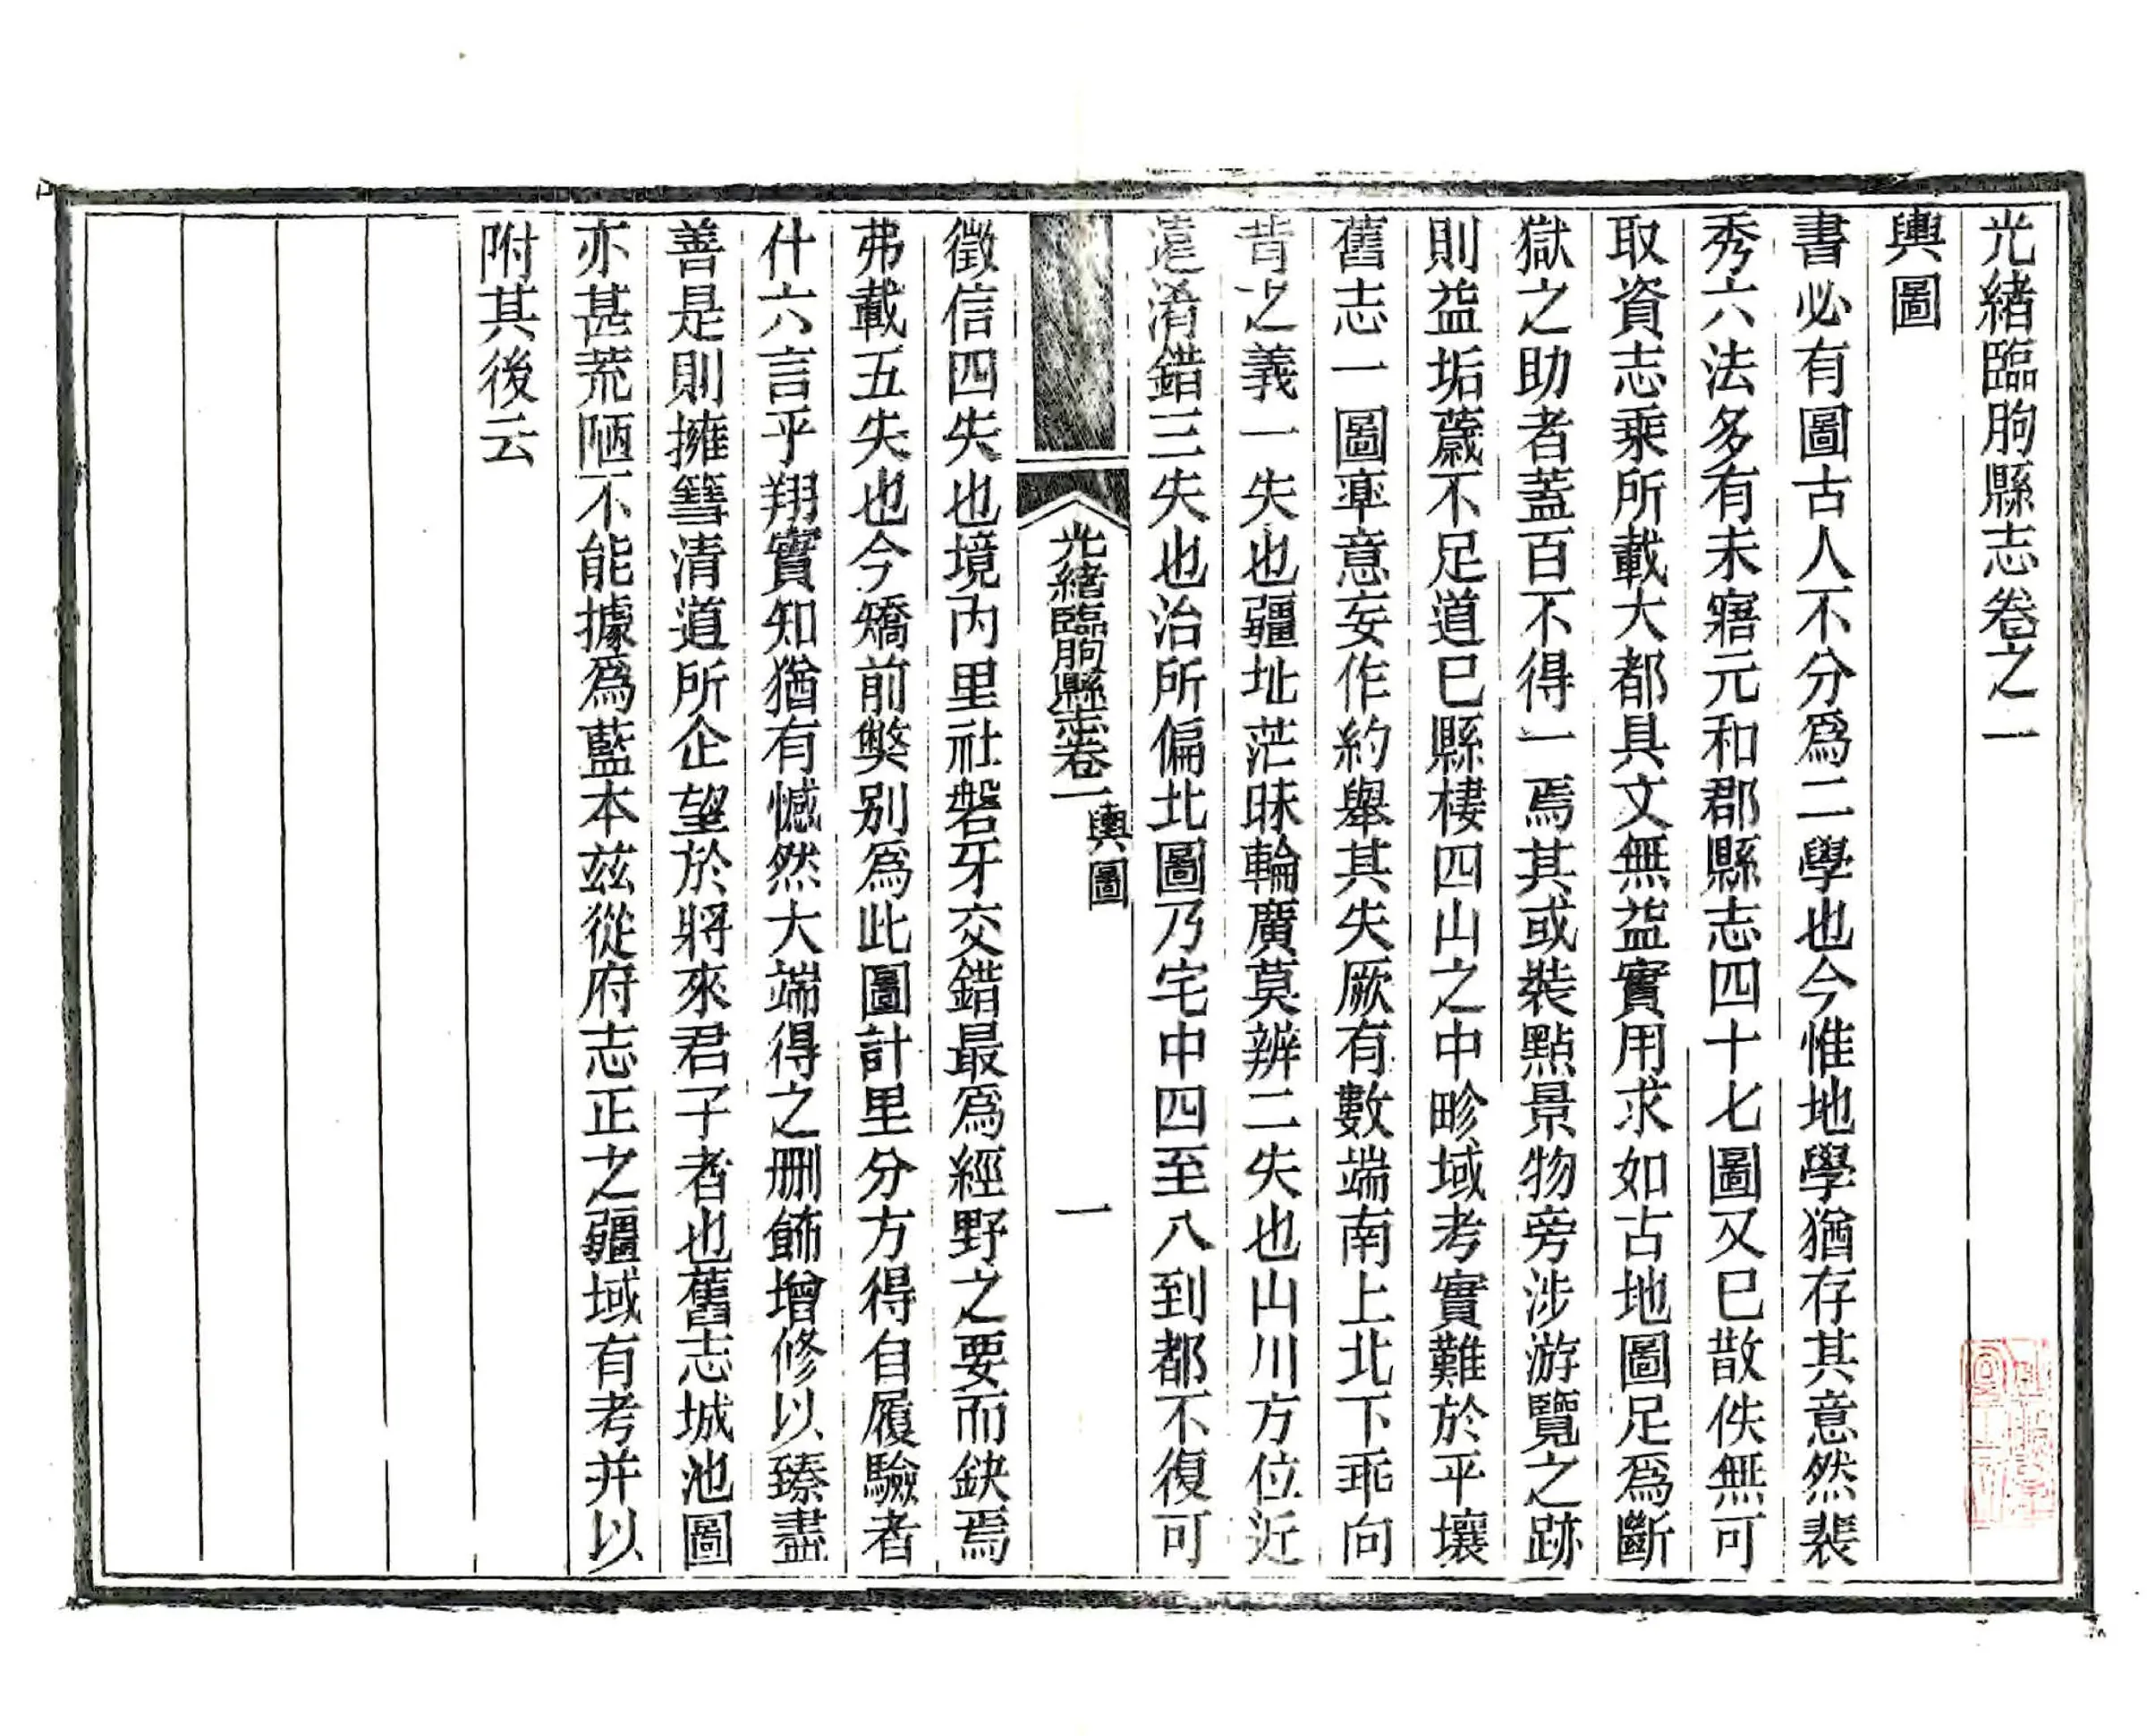 光緒臨朐縣志卷之一
輿圖
書必有圖古人不分爲二學也今惟地學猶存其意然裴
秀六法多有未窹元和郡縣志四十七圖又已散佚無可
取資志乘所載大都具文無益實用求如古地圖足爲斷
獄之助者蓋百不得一焉其或裝點景物旁涉游覽之跡
則益垢薉不足道已縣棲四山之中畛域考實難於平壤
舊志一圖率意妄作約舉其失厥有數端南上北下乖向
背之義一失也疆址茫昧輪廣莫辨二失也山川方位近
遠淆錯三失也治所偏北圖乃宅中四至八到都不復可
光緒臨朐縣志卷一
輿圖
一
徵信四失也境內里社磐牙交錯最爲經野之要而缺焉
弗載五失也今矯前獘別爲此圖計里分方得自履驗者
什六言乎翔實知猶有憾然大端得之刪飾增修以臻盡
善是則擁篲清道所企望於將來君子者也舊志城池圖
亦甚荒陋不能據爲藍本茲從府志正之疆域有考并以
附其後云